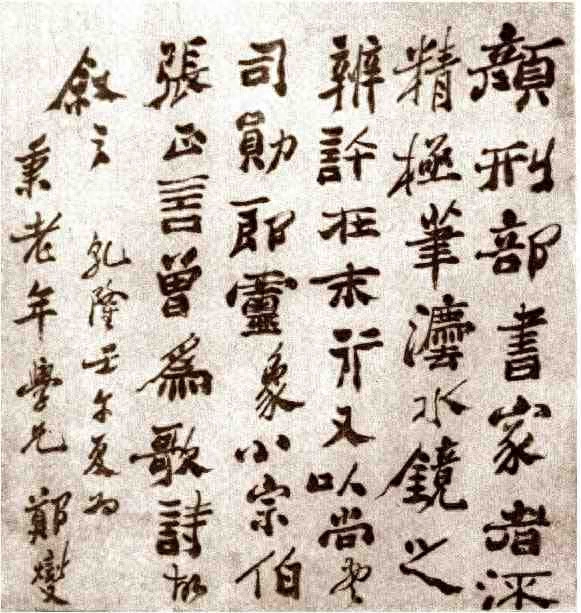 顏刑部書家者流
精極筆灋水鏡之
辨許在末行又以尚書
司勳郎盧象小宗伯
張正言曾爲歌詩故
敘之 乾隆壬午夏為
秉老年學兄 鄭燮